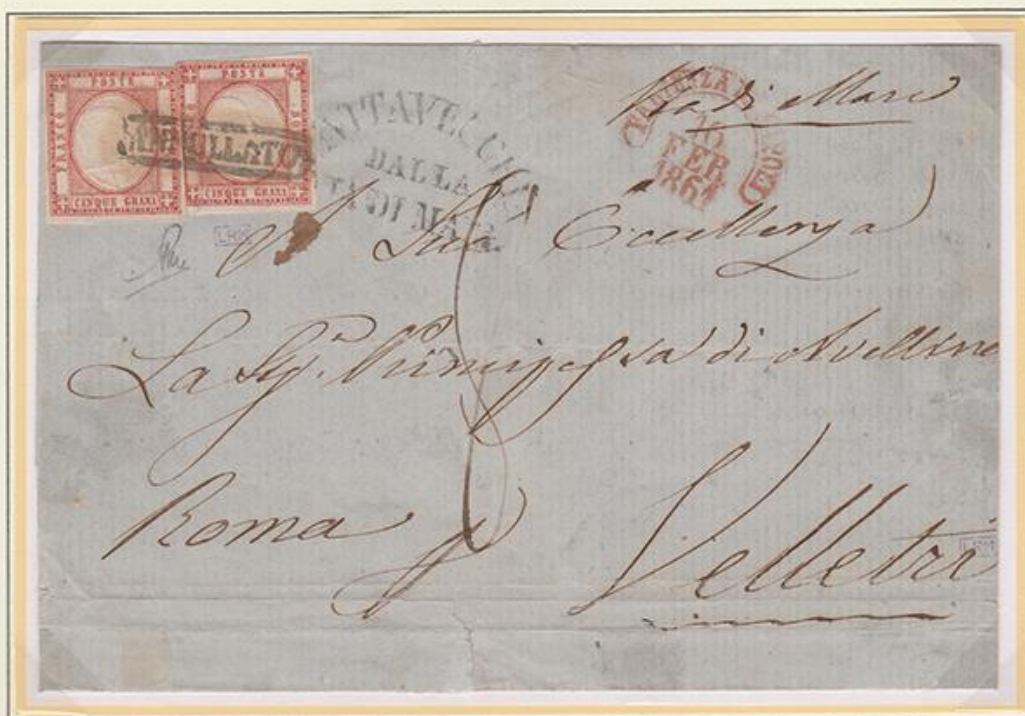 POSTA POSTA
FRANCO
CINQUE GRANA CINQUE GRANA
ANNULLATO
CIVITAVECCHIA
DALLA
VIA DI MARE
PARTENZA
FEB
1861
Via di Mare
A Sua Eccellenza
La Sig.ª Principessa di Avellino
Roma p Velletri